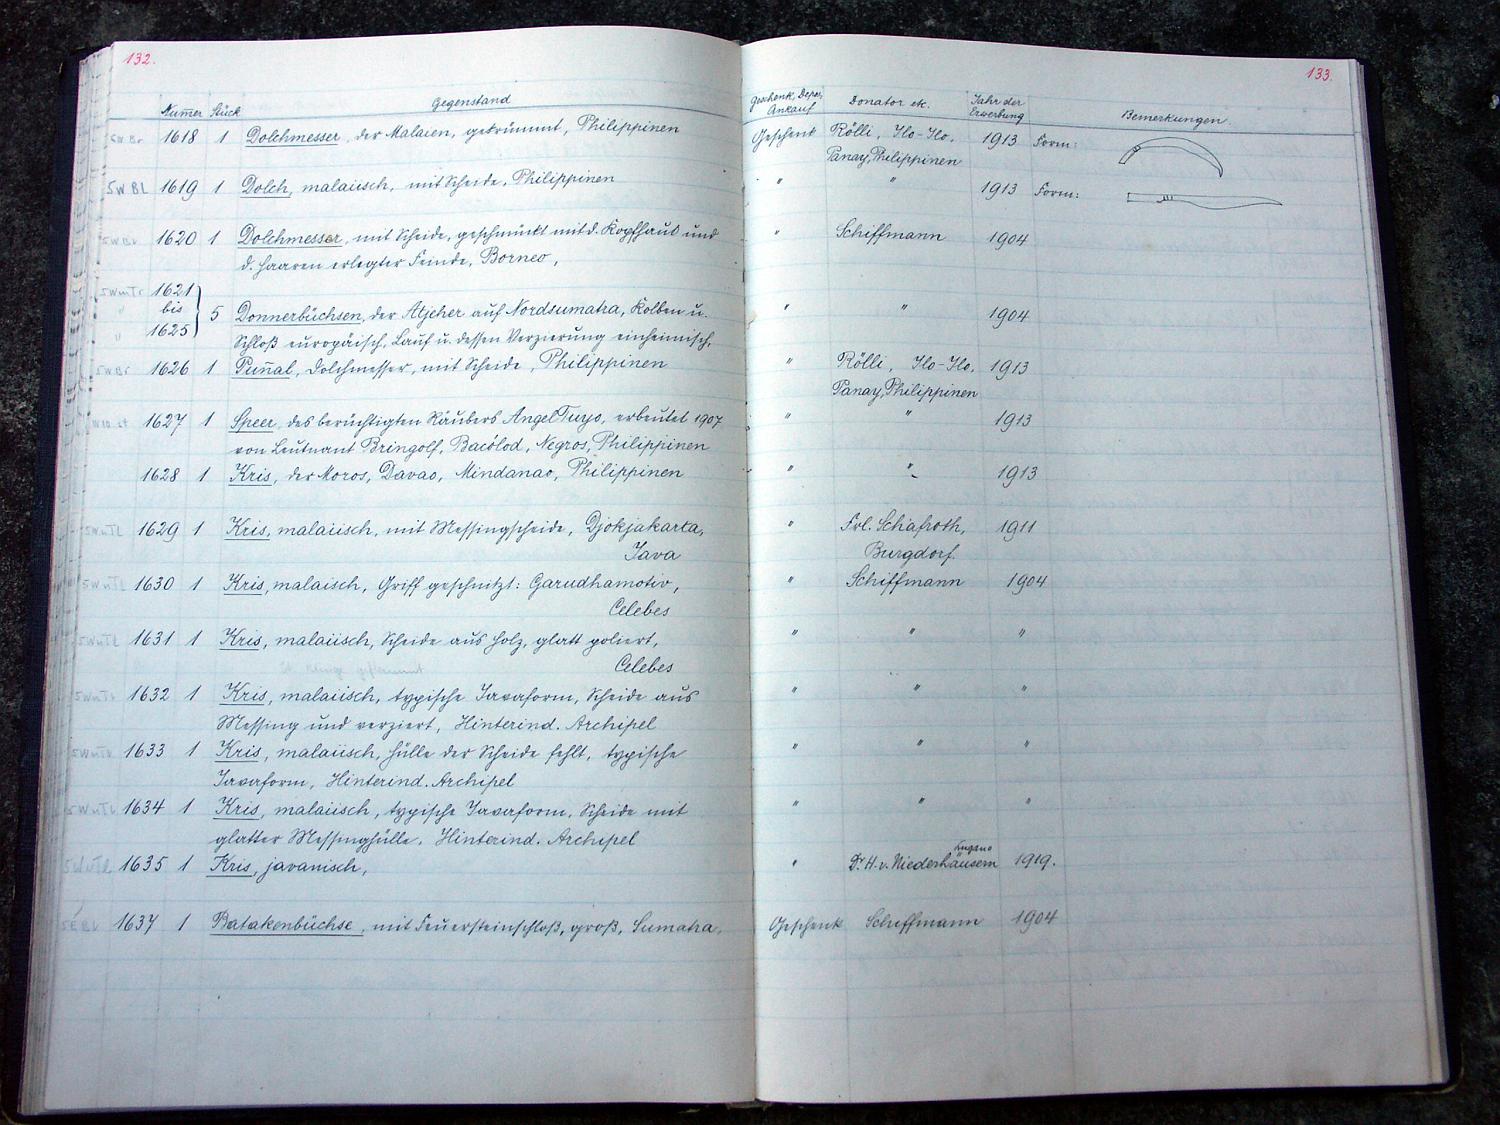 132.
Nummer Stück Gegenstand
1618 1 Dolchmesser, der Malaien, gekrümmt, Philippinen
1619 1 Dolch, malaiisch, mit Scheide, Philippinen
1620 1 Dolchmesser, mit Scheide, geschmückt mit d. Kopfhaut und
d. Haaren erlegter Feinde, Borneo,
1621
bis
1625 5 Donnerbüchsen, der Atjeher auf Nordsumatra, Kolben u.
Schloß europäisch, Lauf u. dessen Verzierung einheimisch,
1626 1 Puñal, Dolchmesser, mit Scheide, Philippinen
1627 1 Speer, des berüchtigten Räubers Angel Tuyo, erbeutet 1907
von Leutnant Bringolf, Bacólod, Negros, Philippinen
1628 1 Kris, der Moros, Davao, Mindanao, Philippinen
1629 1 Kris, malaiisch, mit Messingscheide, Djokjakarta,
Java
1630 1 Kris, malaisch, Griff geschnitzt: Garudhamotiv,
Celebes
1631 1 Kris, malaiisch, Scheide aus Holz, glatt poliert,
Celebes
1632 1 Kris, malaiisch, typische Javaform, Scheide aus
Messing und verziert, Hinterind. Archipel
1633 1 Kris, malaiisch, Hülle der Scheide fehlt, typische
Javaform, Hinterind. Archipel
1634 1 Kris, malaiisch, typische Javaform, Scheide mit
glatter Messinghülle, Hinterind. Archipel
1635 1 Kris, javanisch,
1637 1 Batakenbüchse, mit Feuersteinschloß, groß, Sumatra.
133.
Geschenk, Depos, Donator etc. Jahr der Bemerkungen
Ankauf Erwerbung
Geschenk Rölli, Ilo-Ilo. 1913 Form:
Panay, Philippinen
" " 1913 Form:
" Schiffmann 1904
" " 1904
" Rölli, Ilo-Ilo. 1913
Panay, Philippinen
" " 1913
" " 1913
" Frl. Schafroth, 1911
Burgdorf.
" Schiffmann 1904
" " "
" " "
" " "
" " "
Lugano
" Dr H. v. Niederhäusern 1919.
Geschenk Schiffmann 1904